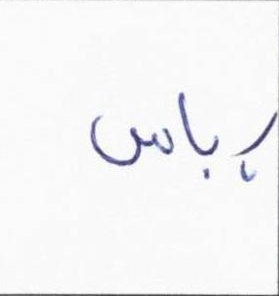 ر باس